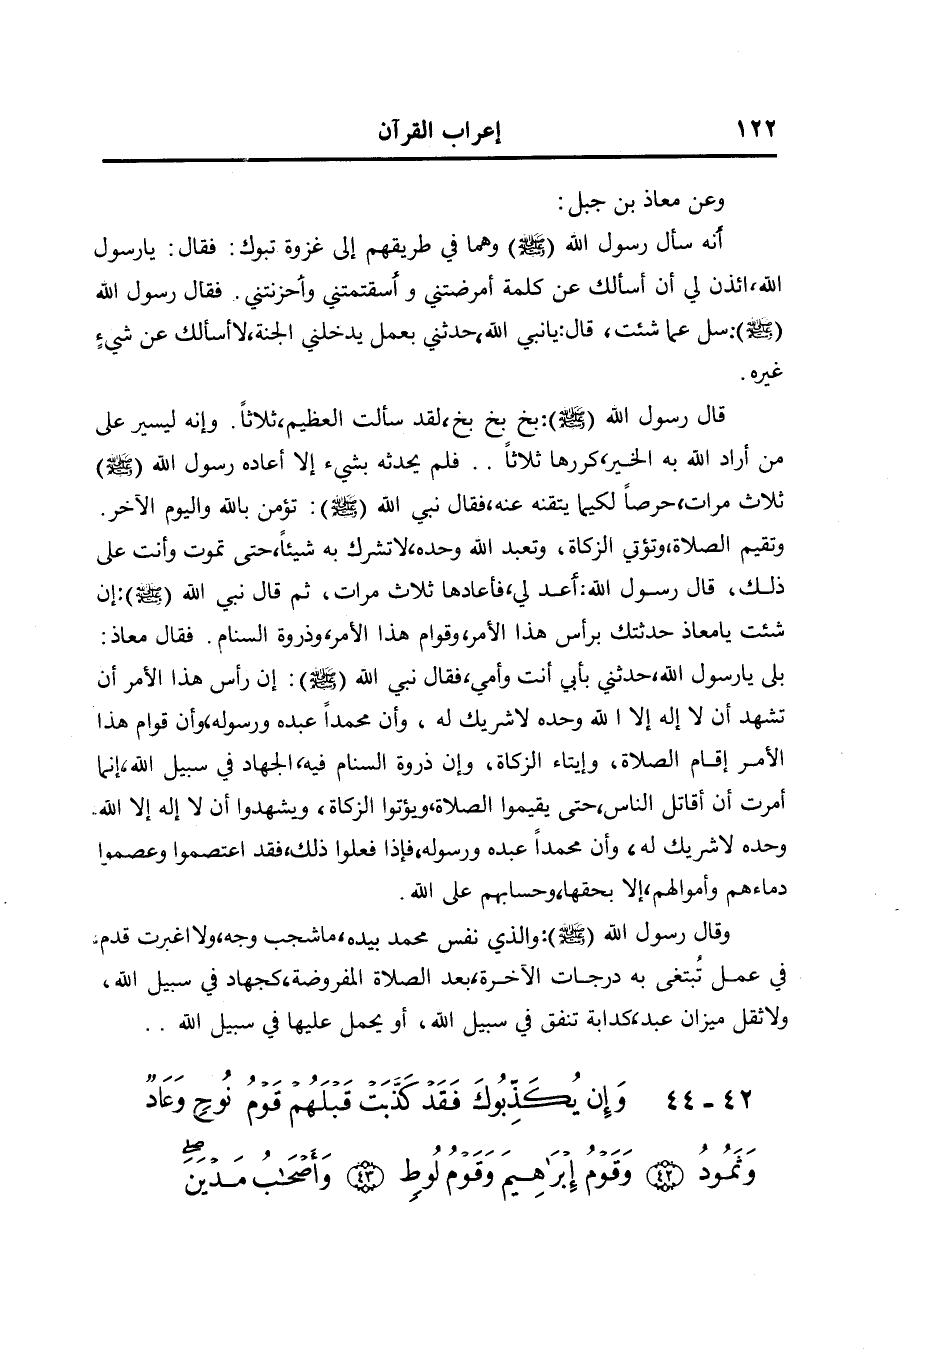 ١٢٢ إعراب القرآن
وعن معاذ بن جبل:
أنه سأل رسول الله (ﷺ) وهما في طريقهم إلى غزوة تبوك: فقال: يارسول
الله،ائذن لي أن أسألك عن كلمة أمرضتني و أسقتمتني وأحزنتني. فقال رسول الله
(ﷺ):سل عما شئت، قال:يانبي الله،حدثني بعمل يدخلني الجنة،لاأسألك عن شيءٍ
غيره.
قال رسول الله (ﷺ):بخ بخ بخ،لقد سألت العظيم،ثلاثاً. وإنه ليسير على
من أراد الله به الخير،كررها ثلاثاً .. فلم يحدثه بشيء إلا أعاده رسول الله (ﷺ)
ثلاث مرات،حرصاً لكيما يتقنه عنه،فقال نبي الله (ﷺ): تؤمن بالله واليوم الآخر.
وتقيم الصلاة،وتؤتي الزكاة، وتعبد الله وحده،لاتشرك به شيئاً،حتى تموت وأنت على
ذلك، قال رسول الله:أعد لي،فأعادها ثلاث مرات، ثم قال نبي الله (ﷺ):إن
شئت يامعاذ حدثتك برأس هذا الأمر،وقوام هذا الأمر،وذروة السنام. فقال معاذ:
بلى يارسول الله،حدثني بأبي أنت وأمي،فقال نبي الله (ﷺ): إن رأس هذا الأمر أن
تشهد أن لا إله إلا ا لله وحده لاشريك له ، وأن محمداً عبده ورسوله،وأن قوام هذا
الأمر إقام الصلاة، وإيتاء الزكاة، وإن ذروة السنام فيه،الجهاد في سبيل الله،إنما
أمرت أن أقاتل الناس،حتى يقيموا الصلاة،ويؤتوا الزكاة، ويشهدوا أن لا إله إلا الله.
وحده لاشريك له، وأن محمداً عبده ورسوله،فإذا فعلوا ذلك،فقد اعتصموا وعصموا
دماءهم وأموالهم،إلا بحقها،وحسابهم على الله.
وقال رسول الله (ﷺ):والذي نفس محمد بيده،ماشجب وجه،ولااغبرت قدم،
في عمل تُبتغى به درجات الآخرة،بعد الصلاة المفروضة،كجهاد في سبيل الله،
ولاثقل ميزان عبد،كدابة تنفق في سبيل الله، أو يحمل عليها في سبيل الله ..
٤٢ - ٤٤ وَإِن يُكَذِّبُوكَ فَقَدْ كَذَّبَتْ قَبْلَهُمْ قَوْمُ نُوحٍ وَعَادٌ
وَثَمُودُ ﴿٤٢﴾ وَقَوْمُ إِبْرَٰهِيمَ وَقَوْمُ لُوطٍ ﴿٤٣﴾ وَأَصْحَٰبُ مَدْيَنَ ۖ